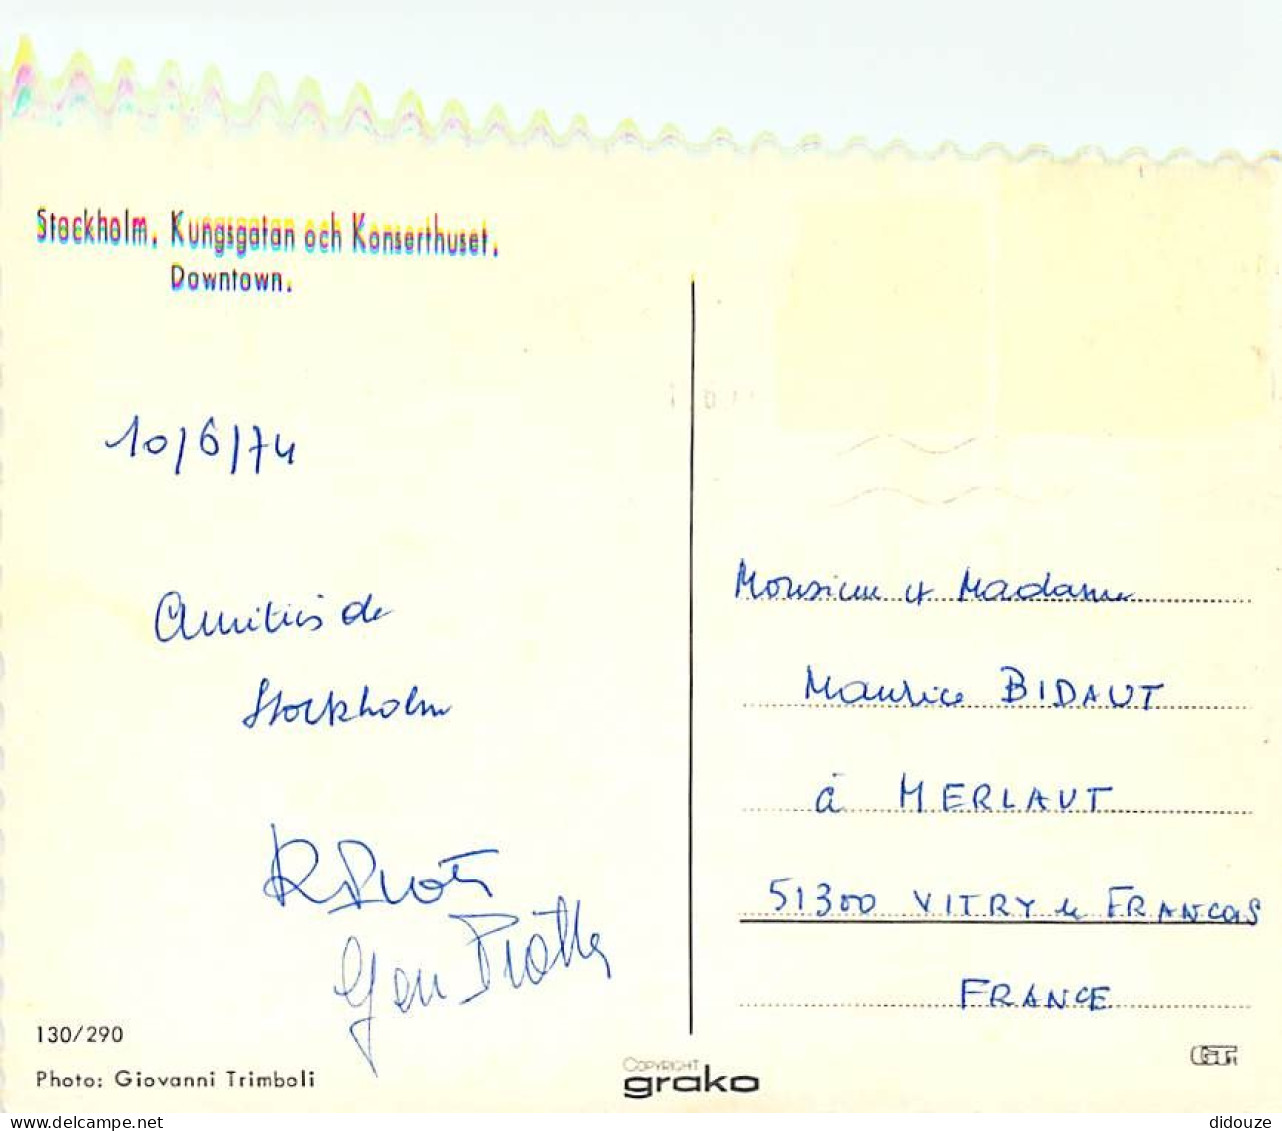 Stockholm, Kungsgatan och Konserthuset.
Downtown.
10/6/74
Amitiés de
Stockholm
130/290
Photo: Giovanni Trimboli
COPYRIGHT
grako
Monsieur et Madame
Maurice BIDAUT
à MERLAUT
51300 VITRY le FRANCOIS
FRANCE
www.delcampe.net
didouze